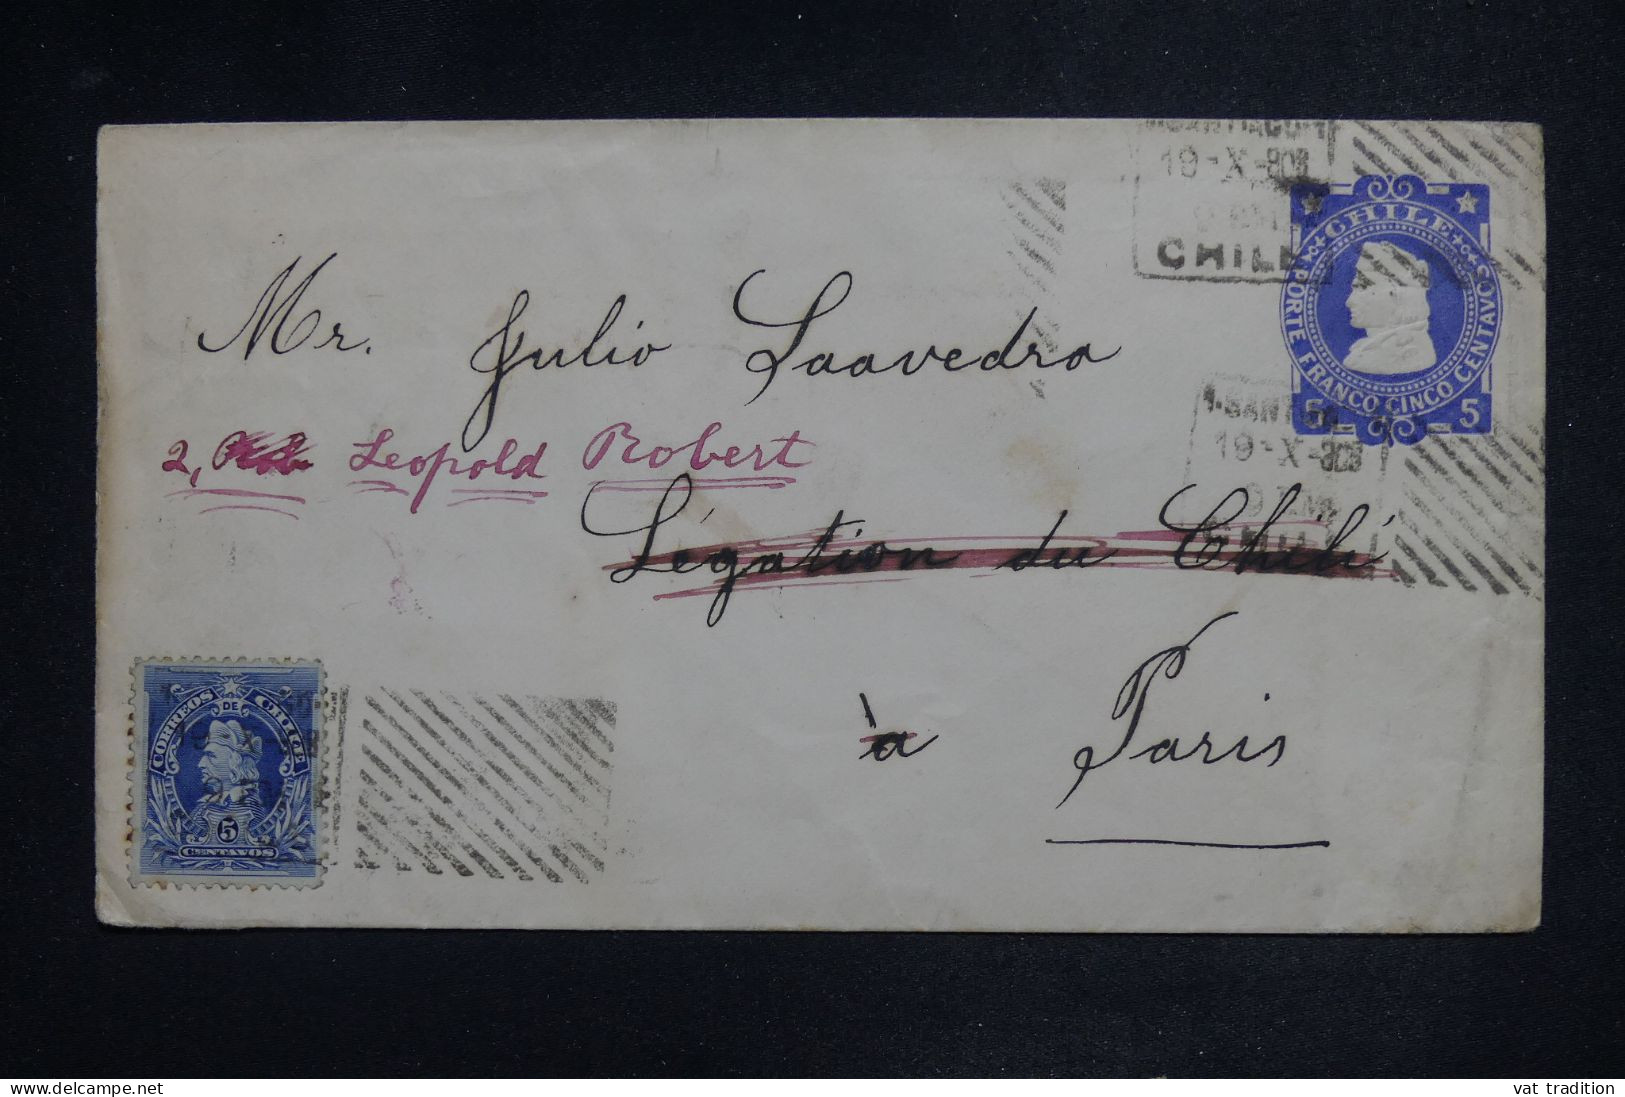 19-X-908
CHILE
CHILE
PORTE FRANCO CINCO CENTAVOS
5 5
Mr. Julio Saavedra
2, Leopold Robert
19-X-908
Légation du Chili
à Paris
CORREOS DE CHILE
5
CENTAVOS
vat tradition